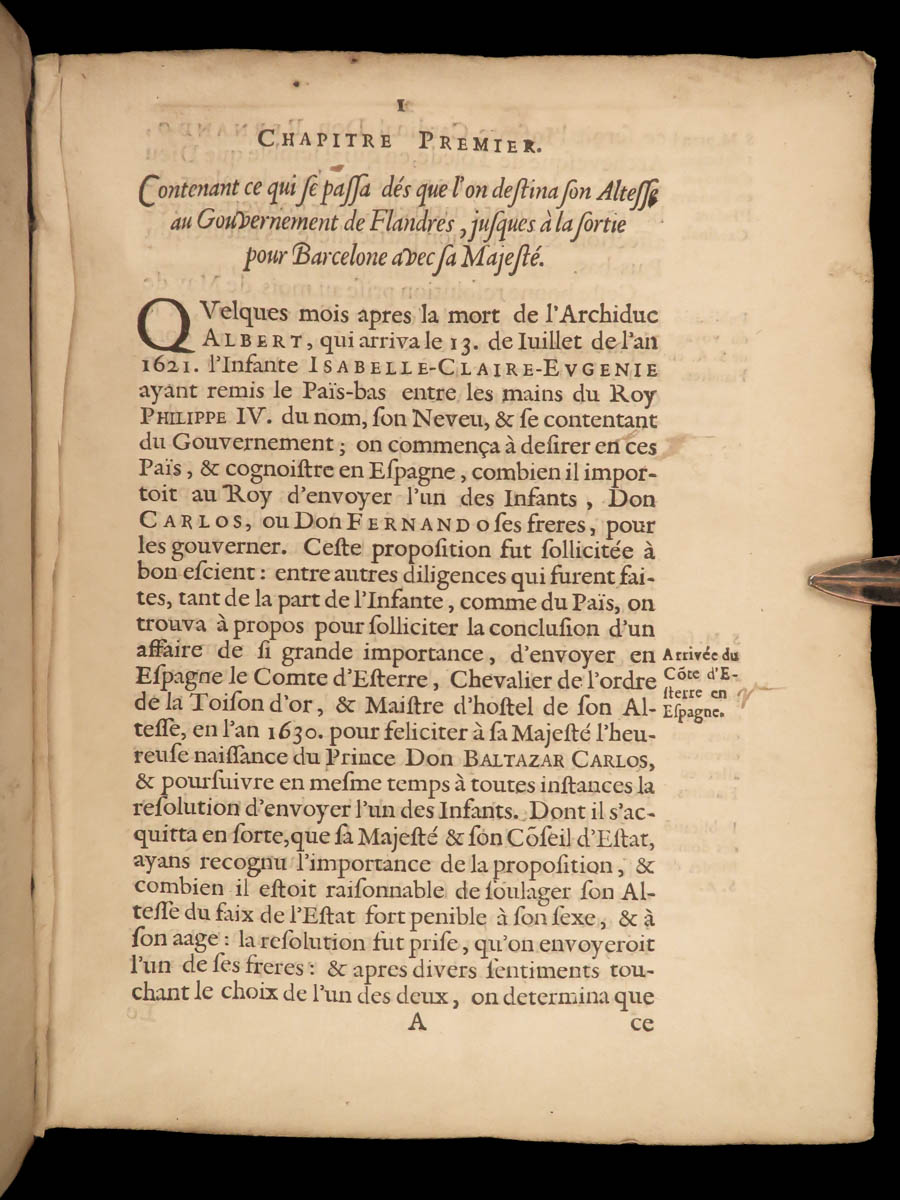 1
CHAPITRE PREMIER.
Contenant ce qui ſe paſſa dés que l'on deſtina ſon Alteſſe
au Gouvernement de Flandres, juſques à la ſortie
pour Barcelone avec ſa Majeſté.
QVelques mois apres la mort de l'Archiduc
ALBERT, qui arriva le 13. de Iuillet de l'an
1621. l'Infante ISABELLE-CLAIRE-EVGENIE
ayant remis le Païs-bas entre les mains du Roy
PHILIPPE IV. du nom, ſon Neveu, & ſe contentant
du Gouvernement; on commença à deſirer en ces
Païs, & cognoiſtre en Eſpagne, combien il impor-
toit au Roy d'envoyer l'un des Infants, Don
CARLOS, ou Don FERNANDO ſes freres, pour
les gouverner. Ceſte propoſition fut ſollicitée à
bon eſcient: entre autres diligences qui furent fai-
tes, tant de la part de l'Infante, comme du Païs, on
trouva à propos pour ſolliciter la concluſion d'un
affaire de ſi grande importance, d'envoyer en
Eſpagne le Comte d'Eſterre, Chevalier de l'ordre
de la Toiſon d'or, & Maiſtre d'hoſtel de ſon Al-
teſſe, en l'an 1630. pour feliciter à ſa Majeſté l'heu-
reuſe naiſſance du Prince Don BALTAZAR CARLOS,
& pourſuivre en meſme temps à toutes inſtances la
reſolution d'envoyer l'un des Infants. Dont il s'ac-
quitta en ſorte, que ſa Majeſté & ſon Cõſeil d'Eſtat,
ayans recognu l'importance de la propoſition, &
combien il eſtoit raiſonnable de ſoulager ſon Al-
teſſe du faix de l'Eſtat fort penible à ſon ſexe, & à
ſon aage: la reſolution fut priſe, qu'on envoyeroit
l'un de ſes freres: & apres divers ſentiments tou-
chant le choix de l'un des deux, on determina que
A ce
Arrivée du
Cõte d'E-
ſterre en
Eſpagne.